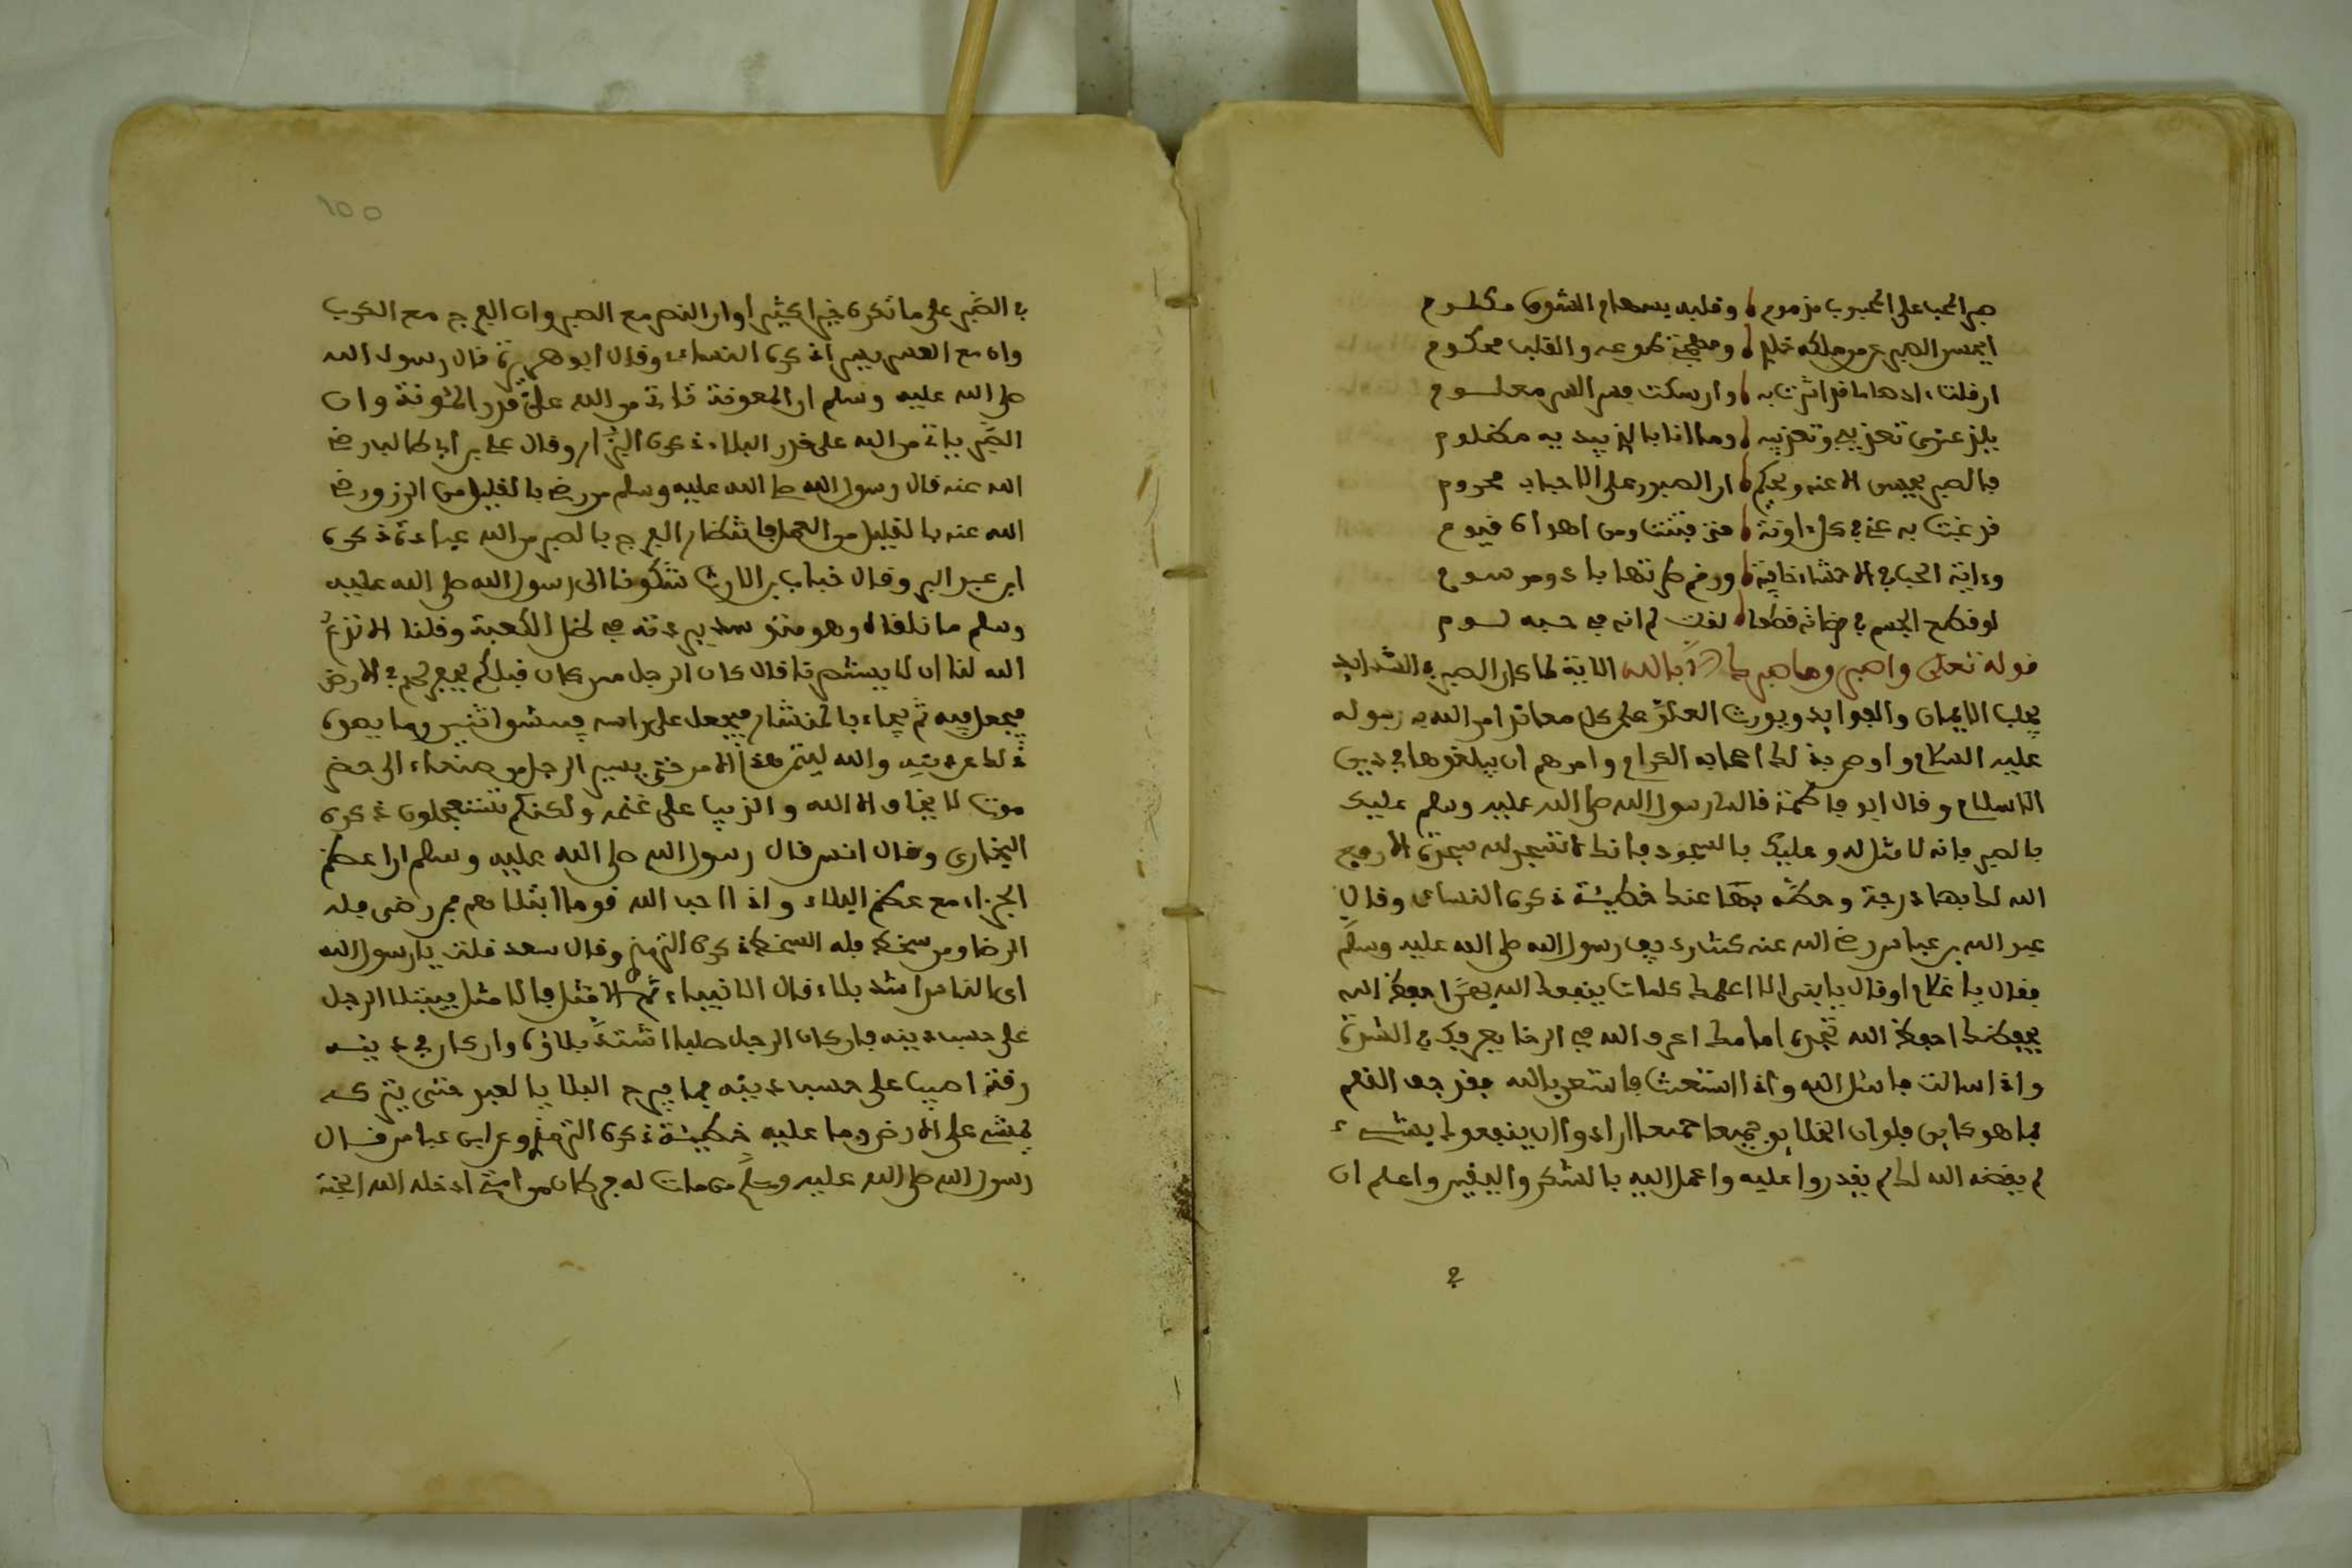 صبر المحب على المحبوب مذموم وقلبه بسهام الشوق مكلوم
ايحسن الصبر عن من ملكه ومهجتي طوعه والقلب محكوم
ان قلت اه فما قد اثرت به وان سكت فسر السر معلوم
يلذ عندي تعذيبي وتعزيبه وما انا بالذي يبديه مظلوم
فالصبر يحسن الا عنه ويحكم ان الصبور على الاحباب محروم
قد غبت به عني في كل اونة متى فتنت ومن اهواه قيوم
وداية الحب في الاحشاء خافية ورقم طرتها بادى ومرسوم
لو قطع الجسم في مرضاته قطعا لقلت لم انه في حبه لوم
قوله تعلى واصبر وما صبرك الا بالله الاية لما كان الصبر في الشدايد
يجلب الايمان والفوايد ويورث العز على كل معاند امر الله به رسوله
عليه السلام واوصى بذلك اصحابه الكرام وامرهم ان يبلغوها في دين
الاسلام وقال ابو فاطمة قال لي رسول الله صلى الله عليه وسلم عليك
بالصبر فانه لا مثل له وعليك بالسجود فانك لا تسجد لله سجدة الا رفع
الله لك بها درجة وحط بها عنك خطيئة ذكره النساى وقال
عبد الله بن عباس رضي الله عنه كنت رديف رسول الله صلى الله عليه وسلم
فقال يا غلام او قال يا بني الا اعلمك كلمات ينفعك الله بهن احفظ الله
يحفظك احفظ الله تجده امامك اعرف الله في الرخا يعرفك في الشدة
واذا سالت فاسئل الله واذا استعنت فاستعن بالله فقد جف القلم
بما هو كاين فلو ان الخلايق جميعا جميعا ارادوا ان ينفعوك بشىء
لم يقضه الله لك لم يقدروا عليه واعمل لله بالشكر واليقين واعلم ان
في
في الصبر على ما تكره خيرا كثيرا وان النصر مع الصبر وان الفرج مع الكرب
وان مع العسر يسرا ذكره النساى وقال ابو هريرة قال رسول الله
صلى الله عليه وسلم ان المعونة تاتي من الله على قدر المئونة وان
الصبر ياتي من الله على قدر البلاء ذكره البزار وقال علي بن أبي طالب رضي
الله عنه قال رسول الله صلى الله عليه وسلم من رضي بالقليل من الرزق رضي
الله عنه بالقليل من العمل فانتظار الفرج بالصبر من الله عبادة ذكره
ابن عبد البر وقال خباب بن الارت شكونا الى رسول الله صلى الله عليه
وسلم ما نلقاه وهو متوسد بردته في ظل الكعبة وقلنا الا تدع
الله لنا الا يستنصر لنا قال كان الرجل من كان قبلكم يحفر لهم في الارض
فيجعل فيه ثم يجاء بالمنشار فيجعل على راسه فيشق اثنين وما يصده
ذلك عن دينه والله ليتمن هذا الامر حتى يسير الرجل من صنعاء الى حضر
موت لا يخاف الا الله والذيب على غنمه ولكنكم تستعجلون ذكره
البخاري وقال انس قال رسول الله صلى الله عليه وسلم ان اعظم
الجزاء مع عظم البلاء واذا احب الله قوما ابتلاهم فمن رضى فله
الرضا ومن سخط فله السخط ذكره الترمذي وقال سعد قلت يا رسول الله
اى الناس اشد بلاء قال الانبياء ثم الامثل فالامثل فيبتلا الرجل
على حسب دينه فان كان الرجل صلبا اشتد بلاؤه وان كان في دينه
رقة اصيب على حسب دينه فما يبرح البلا بالعبد حتى يتركه
يمشي على الارض وما عليه خطيئة ذكره الترمذي وعن ابن عباس قال
رسول الله صلى الله عليه وسلم من مات له فرطان من امتي ادخله الله الجنة